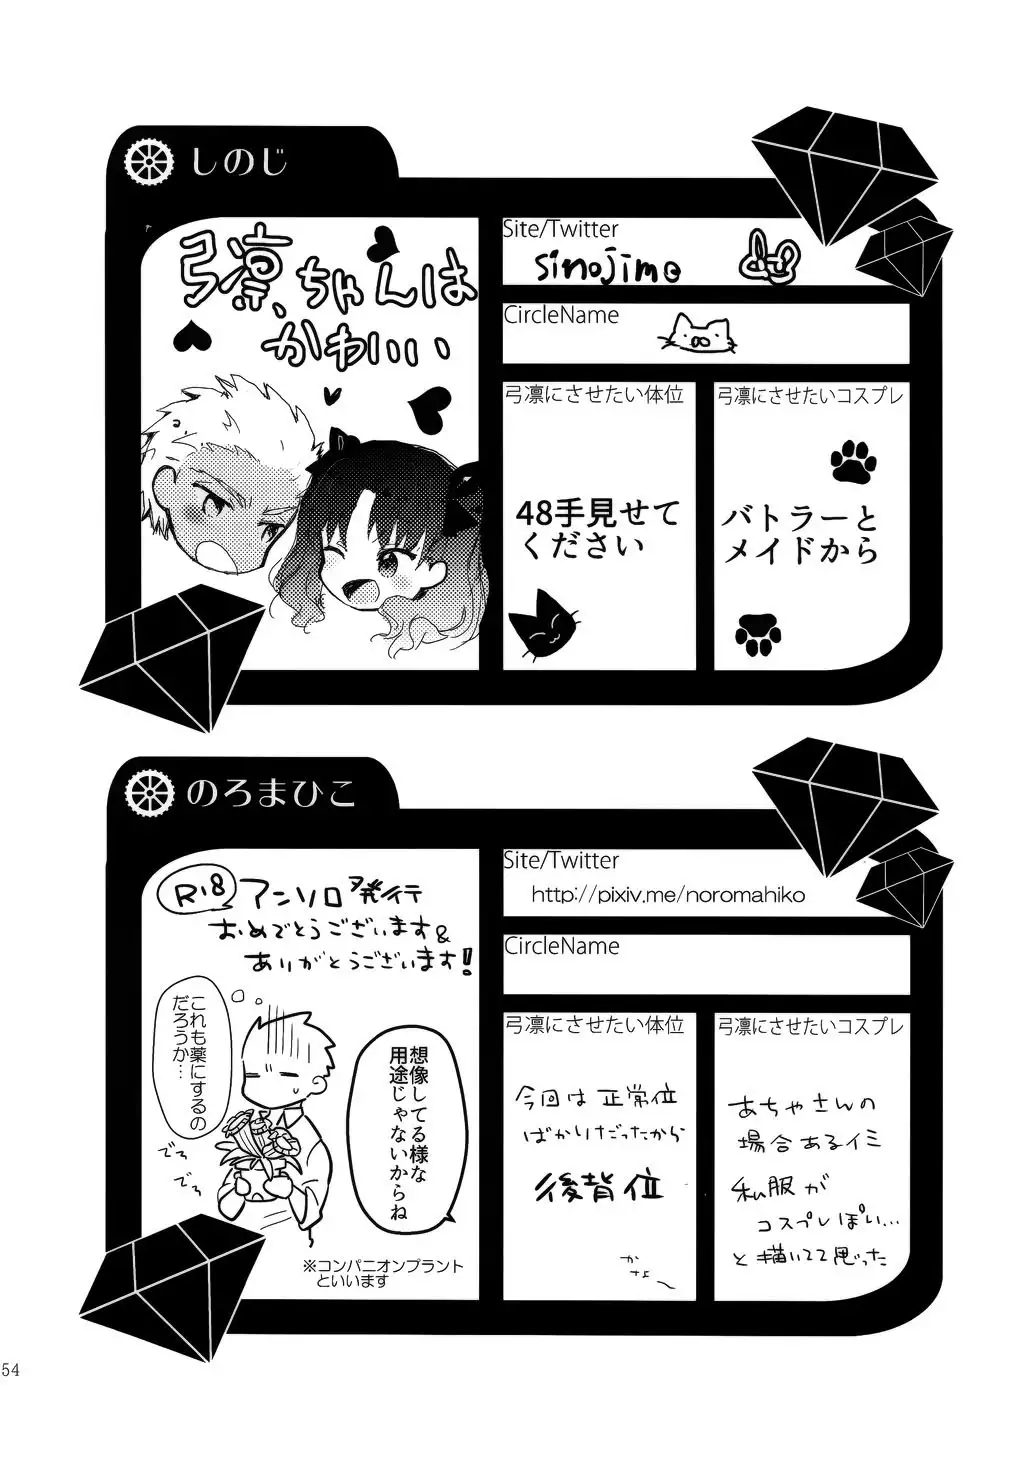 しのじ
弓凛ちゃんは
かわいい
Site/Twitter
sinojim
CircleName
弓凛にさせたい体位
48手見せて
ください
弓凛にさせたいコスプレ
バトラーと
メイドから
のろまひこ
R-18
アンソロ発行
おめでとうございます&
ありがとうございます!
これも薬にするの
だろうか…
想像してる様な
用途じゃないからね
でろ
でろ
※コンパニオンプラント
といいます
Site/Twitter
http://pixiv.me/noromahiko
CircleName
弓凛にさせたい体位
今回は正常位
ばかりだったから
後背位
弓凛にさせたいコスプレ
あちゃさんの
場合あるイミ
私服が
コスプレぽい…
と描いてて思った
54